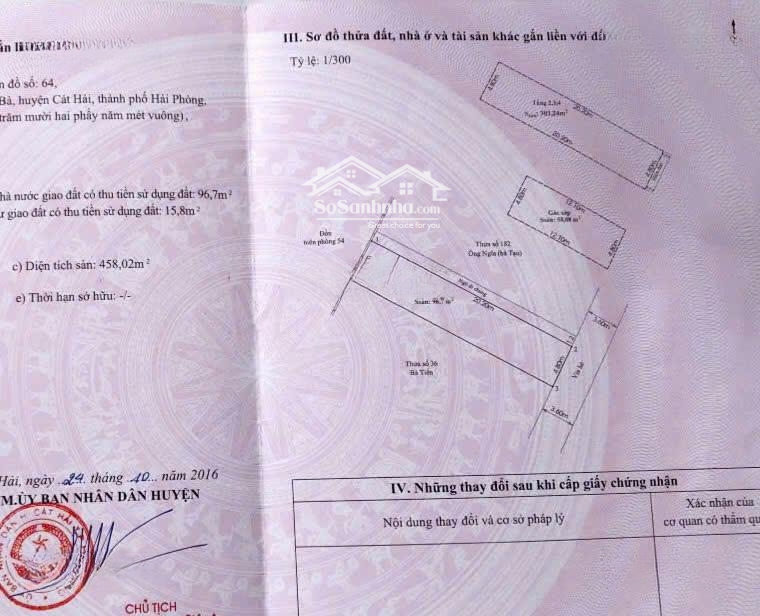 III. Sơ đồ thửa đất, nhà ở và tài sản khác gắn liền với đất
Tỷ lệ: 1/300
đồ số: 64,
Bà, huyện Cát Hải, thành phố Hải Phòng,
trăm mười hai phẩy năm mét vuông),
nhà nước giao đất có thu tiền sử dụng đất: 96,7m²
giao đất có thu tiền sử dụng đất: 15,8m²
c) Diện tích sàn: 458,02m²
e) Thời hạn sở hữu: -/-
Hải, ngày 29 tháng 10 năm 2016
TM.ỦY BAN NHÂN DÂN HUYỆN
CHỦ TỊCH
4.80m
Tầng 2,3,4
20.90m
20.90m
4.80m
4.80m
12.10m
Gác xép
12.10m
4.80m
SoSanhnha.com
Great choice for you
Đồn
biên phòng 54
Thửa số 182
Ông Ngĩa (bà Tạo)
Ngõ đi chung
Ssàn: 96.7 m²
20.90m
3.60m
1.2
2
4.80m
Vỉa hè
3
3.60m
Thửa số 36
Bà Tiên
IV. Những thay đổi sau khi cấp giấy chứng nhận
Nội dung thay đổi và cơ sở pháp lý
Xác nhận của
cơ quan có thẩm qu